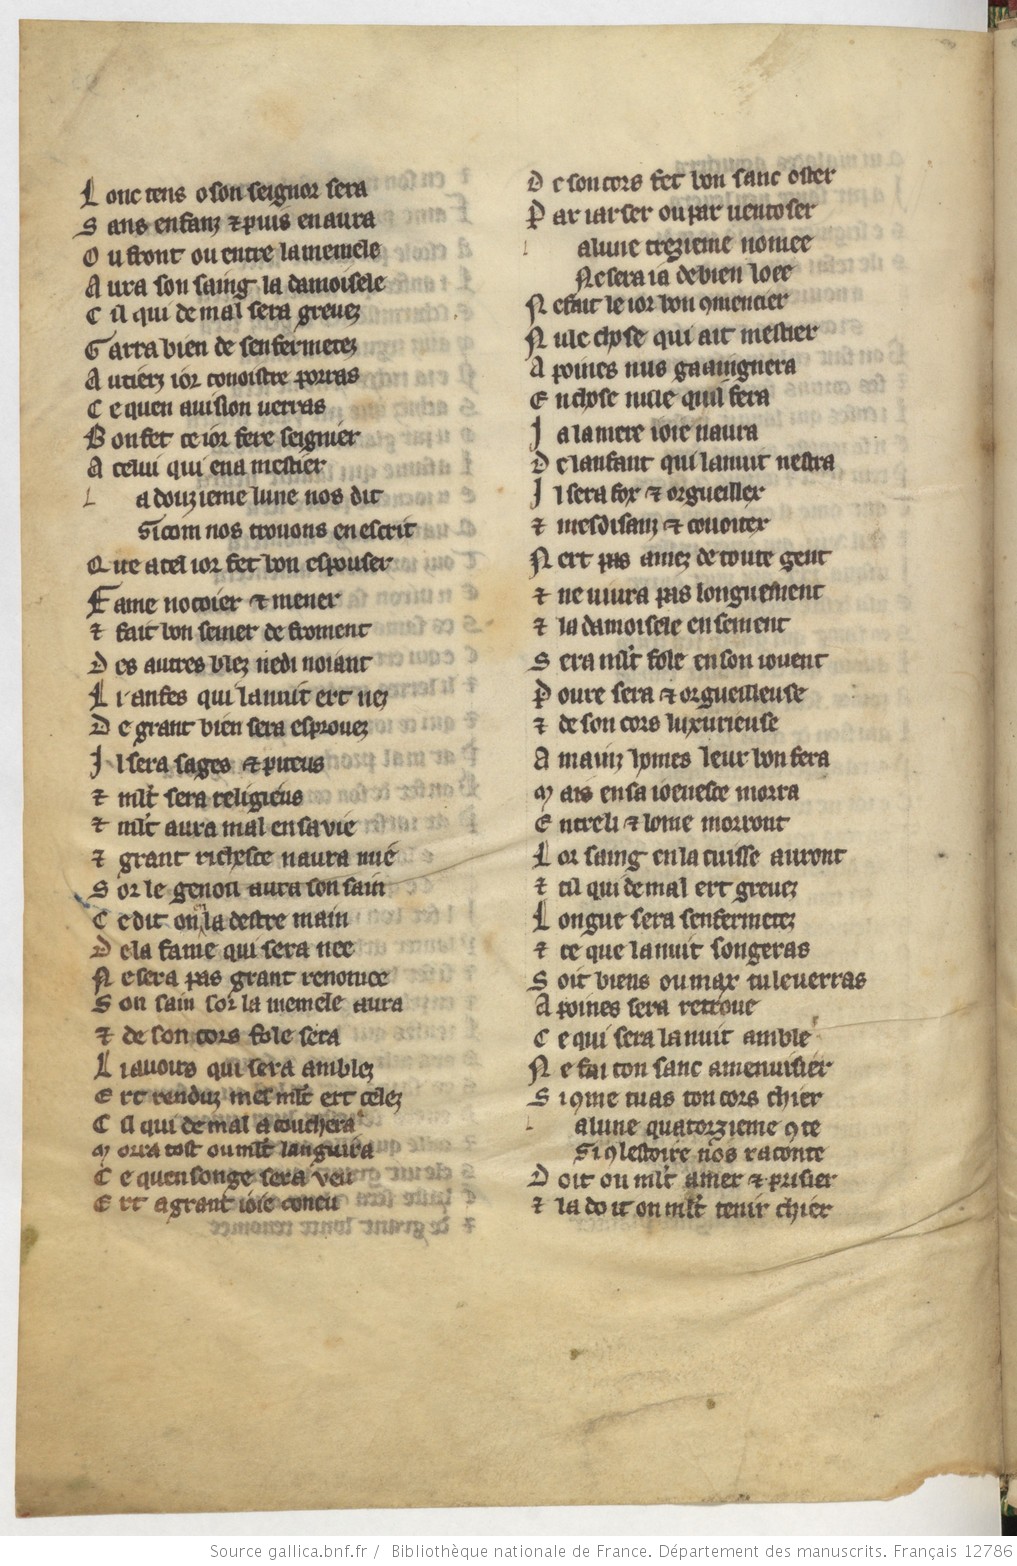 L onc tens o son seignor sera
S ans enfanz ⁊ puis en aura
O u front ou entre la memele
A ura son saing la damoisele
C il qui de mal sera grevez
G arra bien de senfermetez
A utierz ior conoistre porras
C e quen avision verras
B on fet ce ior fere seignier
A celui qui en a mestier
l a douzieme lune nos dit
Sicom nos trouons en escrit
Q ue a cel ior fet bon espouser
F ame nocoier ⁊ mener
⁊ fait bon semer de froment
D es autres blez nedi noiant
L i anfes qui lanuit ert nez
D e grant bien sera esprouez
I l sera sages ⁊ piteus
⁊ mlt sera religieus
⁊ mlt aura mal en sa vie
⁊ grant richesce naura mie
S or le genou aura son sain
C e dit on la destre main
D e la fame qui sera nee
N e sera pas grant renomee
S on sain sor la memele aura
⁊ de son cors fole sera
L i auoirs qui sera amblez
E rt renduz mes mlt ert celez
C il qui de mal acouchera
M orra tost ou mlt languira
C e quen songe sera veu
E rt a grant ioie coneu
D e son cors fet bon sanc oster
P ar iarser ou par uentoser
l a lune trezieme nomee
Ne sera ia de bien loee
N e fait le ior bon ꝯmencier
N ule chose qui ait mestier
A poines nus gaaingnera
E n chose nule quil fera
I a la mere ioie naura
D e lanfant qui lanuit nestra
I l sera fox ⁊ orgueillex
⁊ mesdisanz ⁊ couoitex
N ert pas amez de toute gent
⁊ ne uiura pas longuement
⁊ la damoisele ensement
S era mlt fole en son iouent
P oure sera ⁊ orgueilleuse
⁊ de son cors luxurieuse
A mainz homes leur bon fera
M ais en sa ioenesce morra
E ntreli ⁊ lome morront
L or saing en la cuisse auront
⁊ cil qui de mal ert greuez
L ongue sera senfermetez
⁊ ce que lanuit songeras
S oit biens ou max tu le verras
A poines sera retroue
C e qui sera lanuit amble
N e fai ton sanc amenuisier
S i ꝯme tu as ton cors chier
l a lune quatorzieme ꝯte
Si ꝯ lestoire nos raconte
D oit ou mlt amer ⁊ prisier
⁊ la doit on mlt tenir chier
Source gallica.bnf.fr / Bibliothèque nationale de France. Département des manuscrits. Français 12786